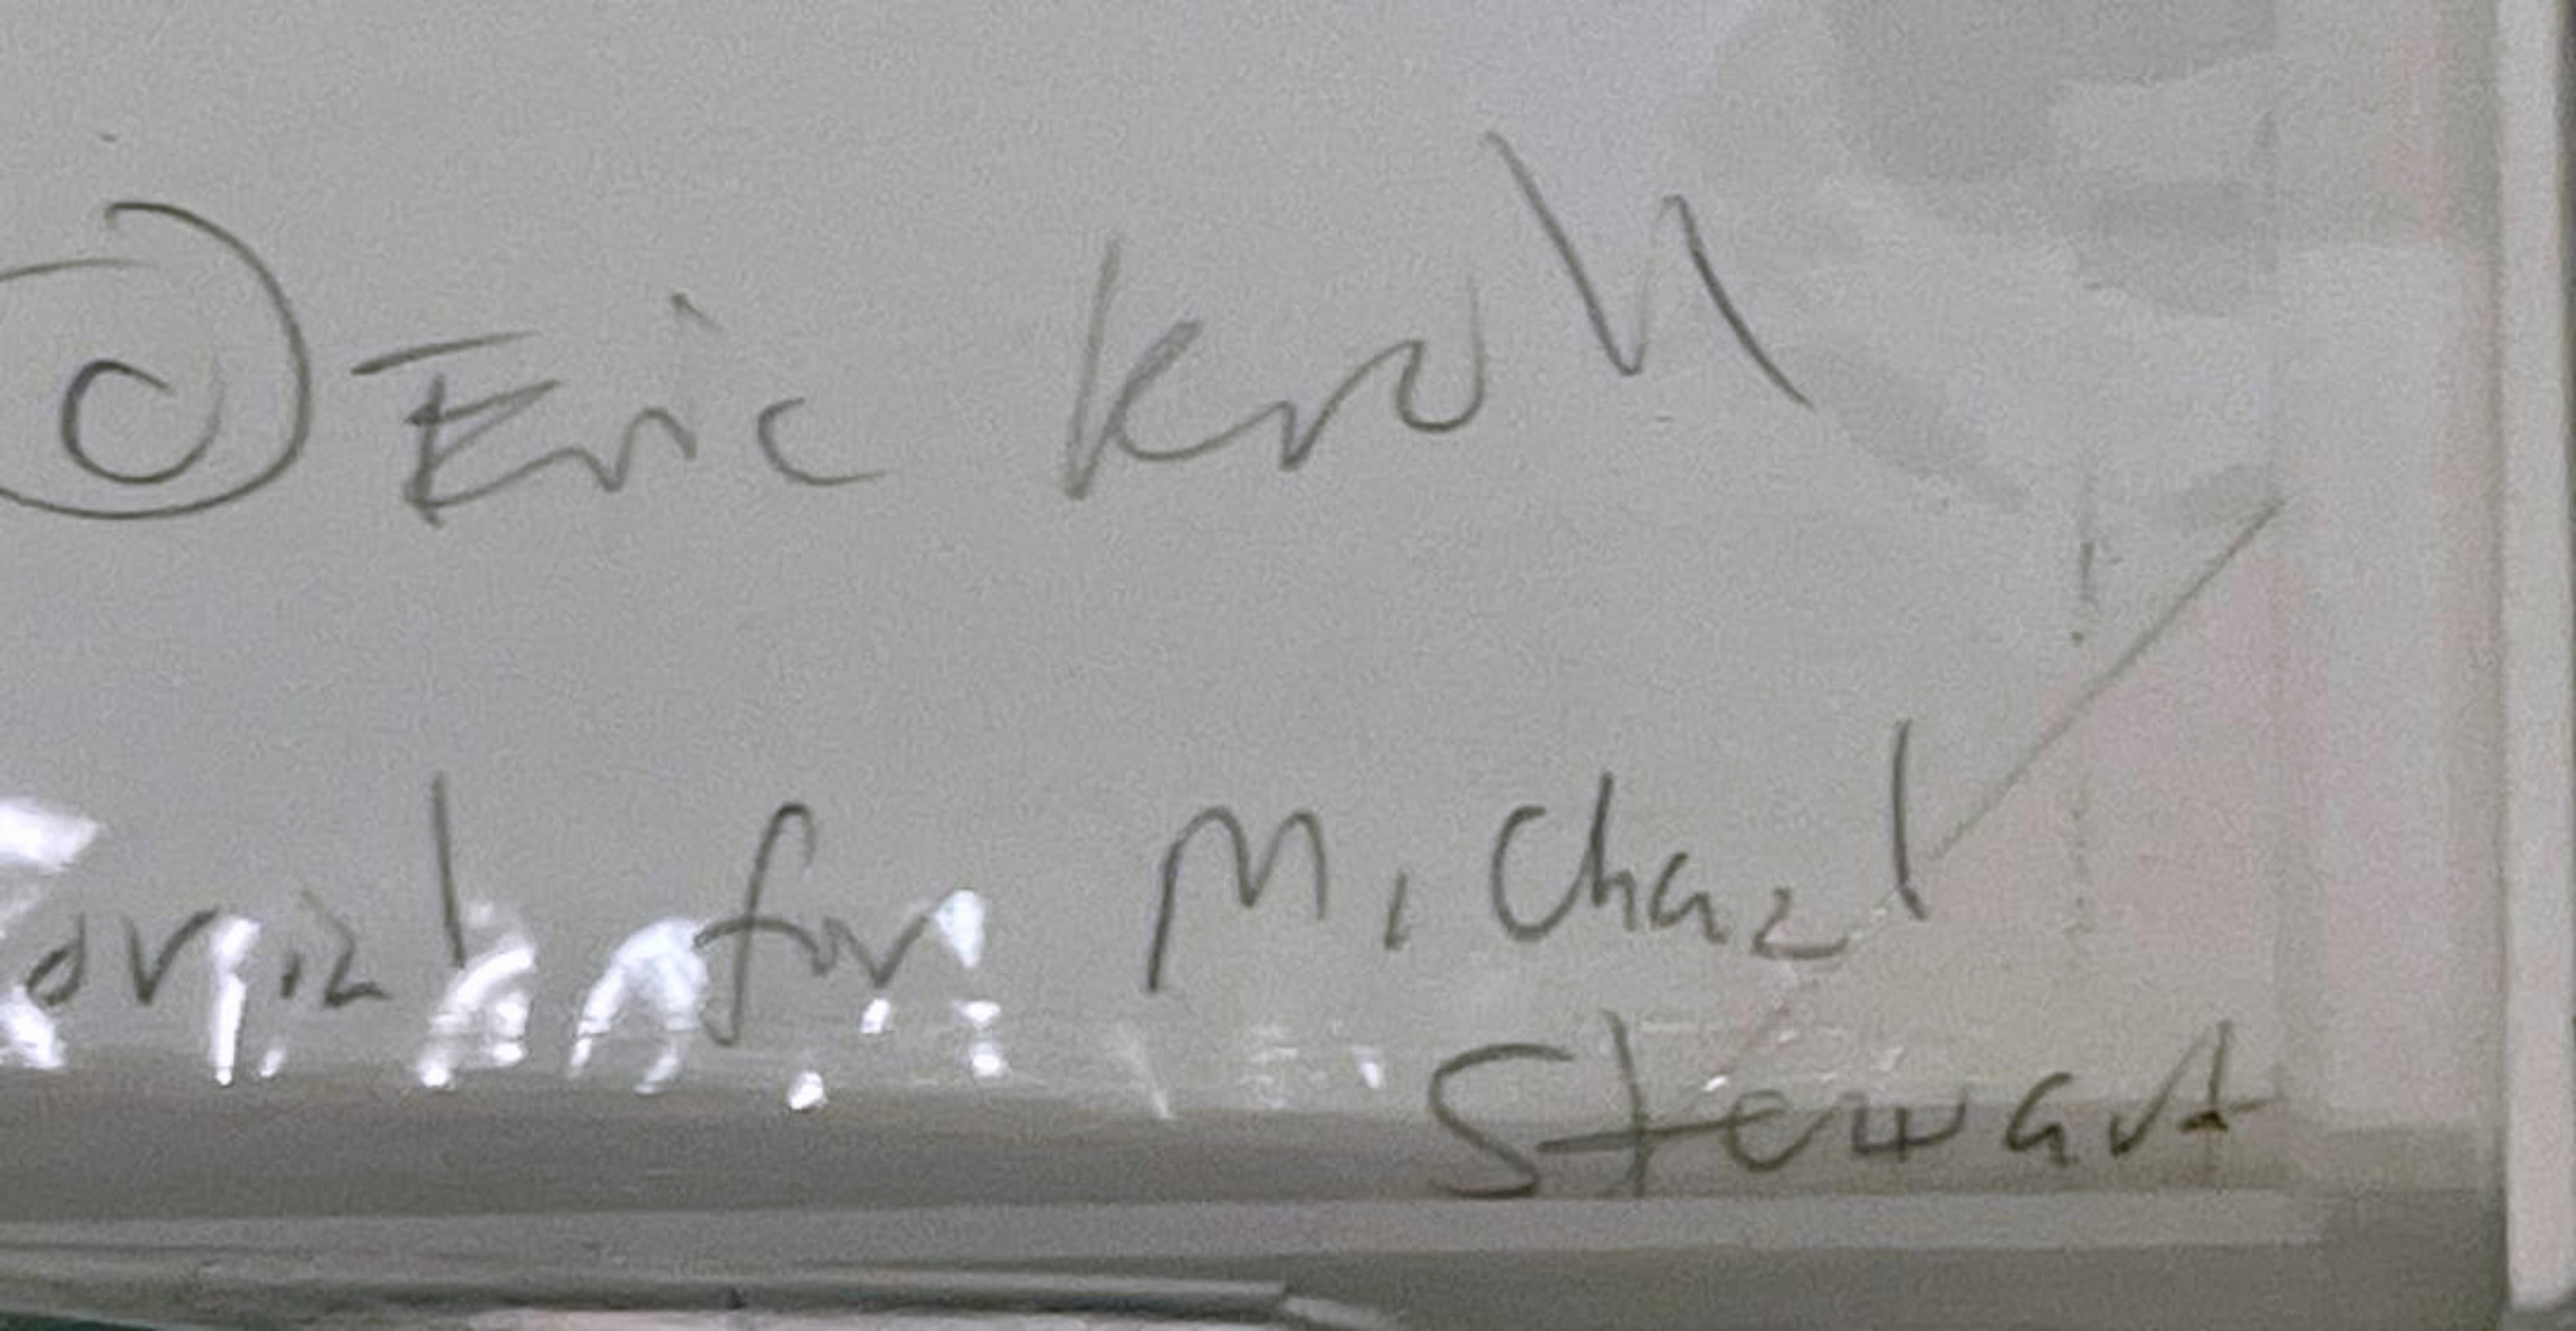 © Eric Kroll
orial for Michael
Stewart